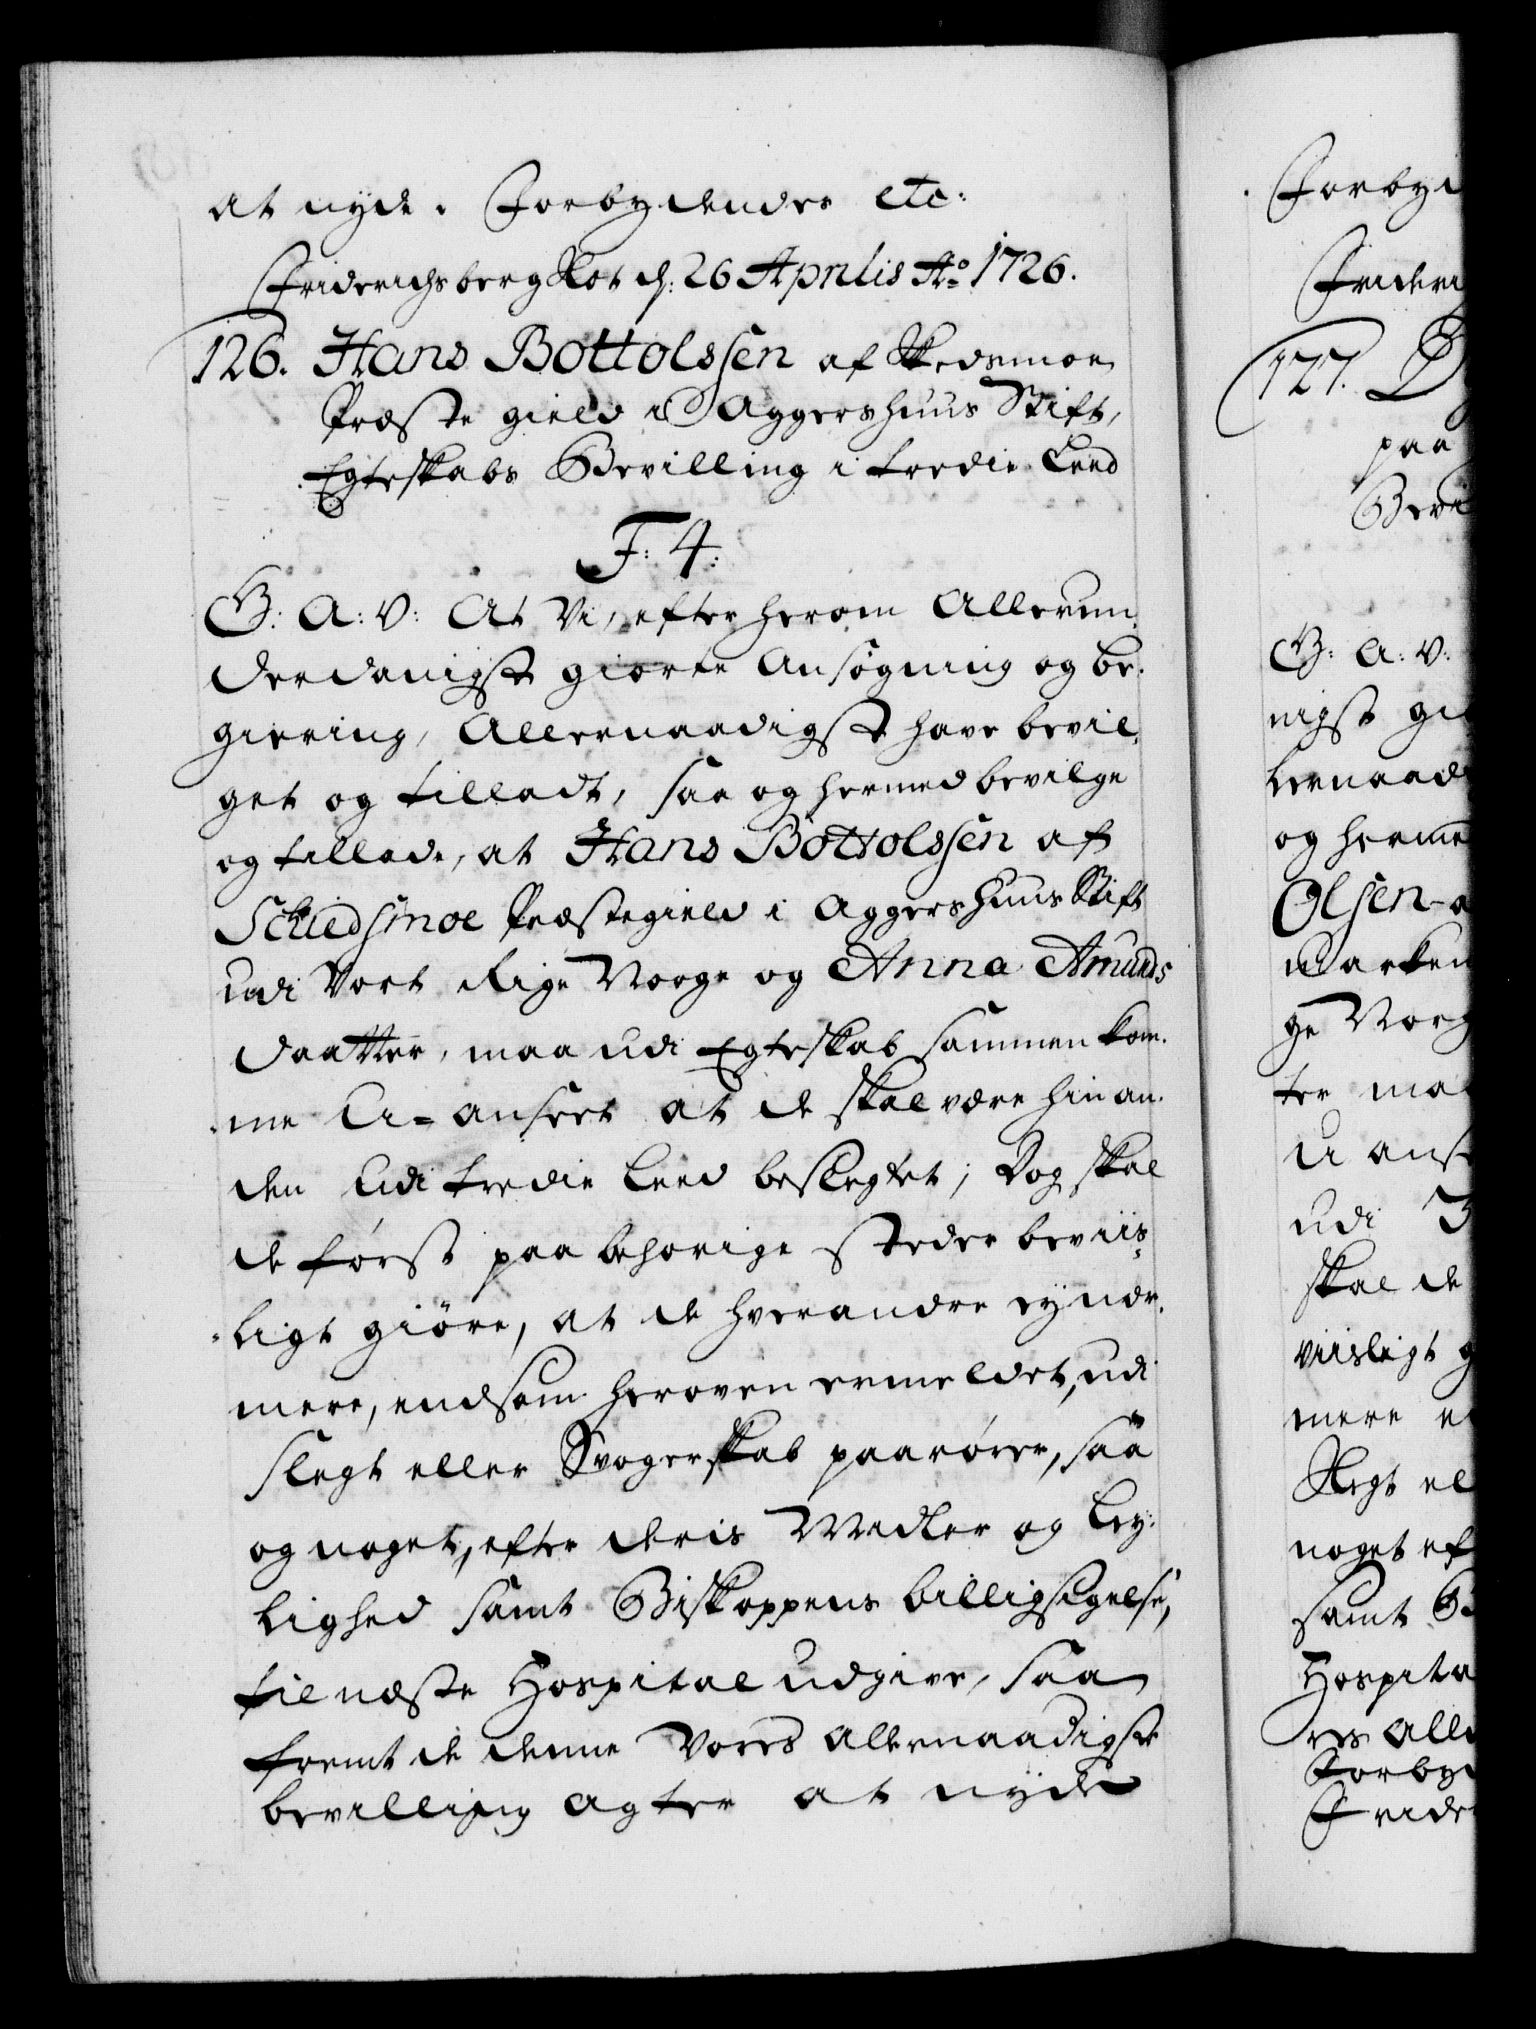 at nyde. Forbydendes etc:
Friderichsberg Slot d: 26 Aprilis Ao 1726.
126. Hans Bottolssen af Skedsmoe
Præste gield i Aggershuus Stift,
Egteskabs Bevilling i tredie Leed
F: 4:
G: A: V: At Vi, efter herom Allerun-
derdanigst giorte Ansøgning og be-
giering, Allernaadigst have bevil-
get og tilladt, saa og hermed bevilge
og tillade, at Hans Bottolssen af
Schiedsmoe Præstegield i Aggershuus Stift
udi Vort Rige Norge og Anna Amunds
daatter, maa udi Egteskab sammen kom-
me U-anseet at de skal være hinan-
den Udi tredie Leed beslegtet; Dog skal
de først paa behørige stæder beviis-
ligt giøre, at de hverandre ey nær-
mere, end som heroven ermeldet, udi
slegt eller Svogerskab paarører, saa
og noget, efter deris Midler og Ley-
lighed samt Biskoppens billigsigelse,
til næste Hospital udgive, saa
fremt de denne Vores allernaadigste
bevilling agter at nyde
Forbyd
Frideri
127.
paa
Bevi
G: A: V:
nigst gi
lernaad
og herme
Olsen a
marken
ge Norg
ter maa
u anse
udi 3
skal de
viisligt g
mere e
Slegt el
noget ef
samt B
Hospita
res alle
Forby
Fride